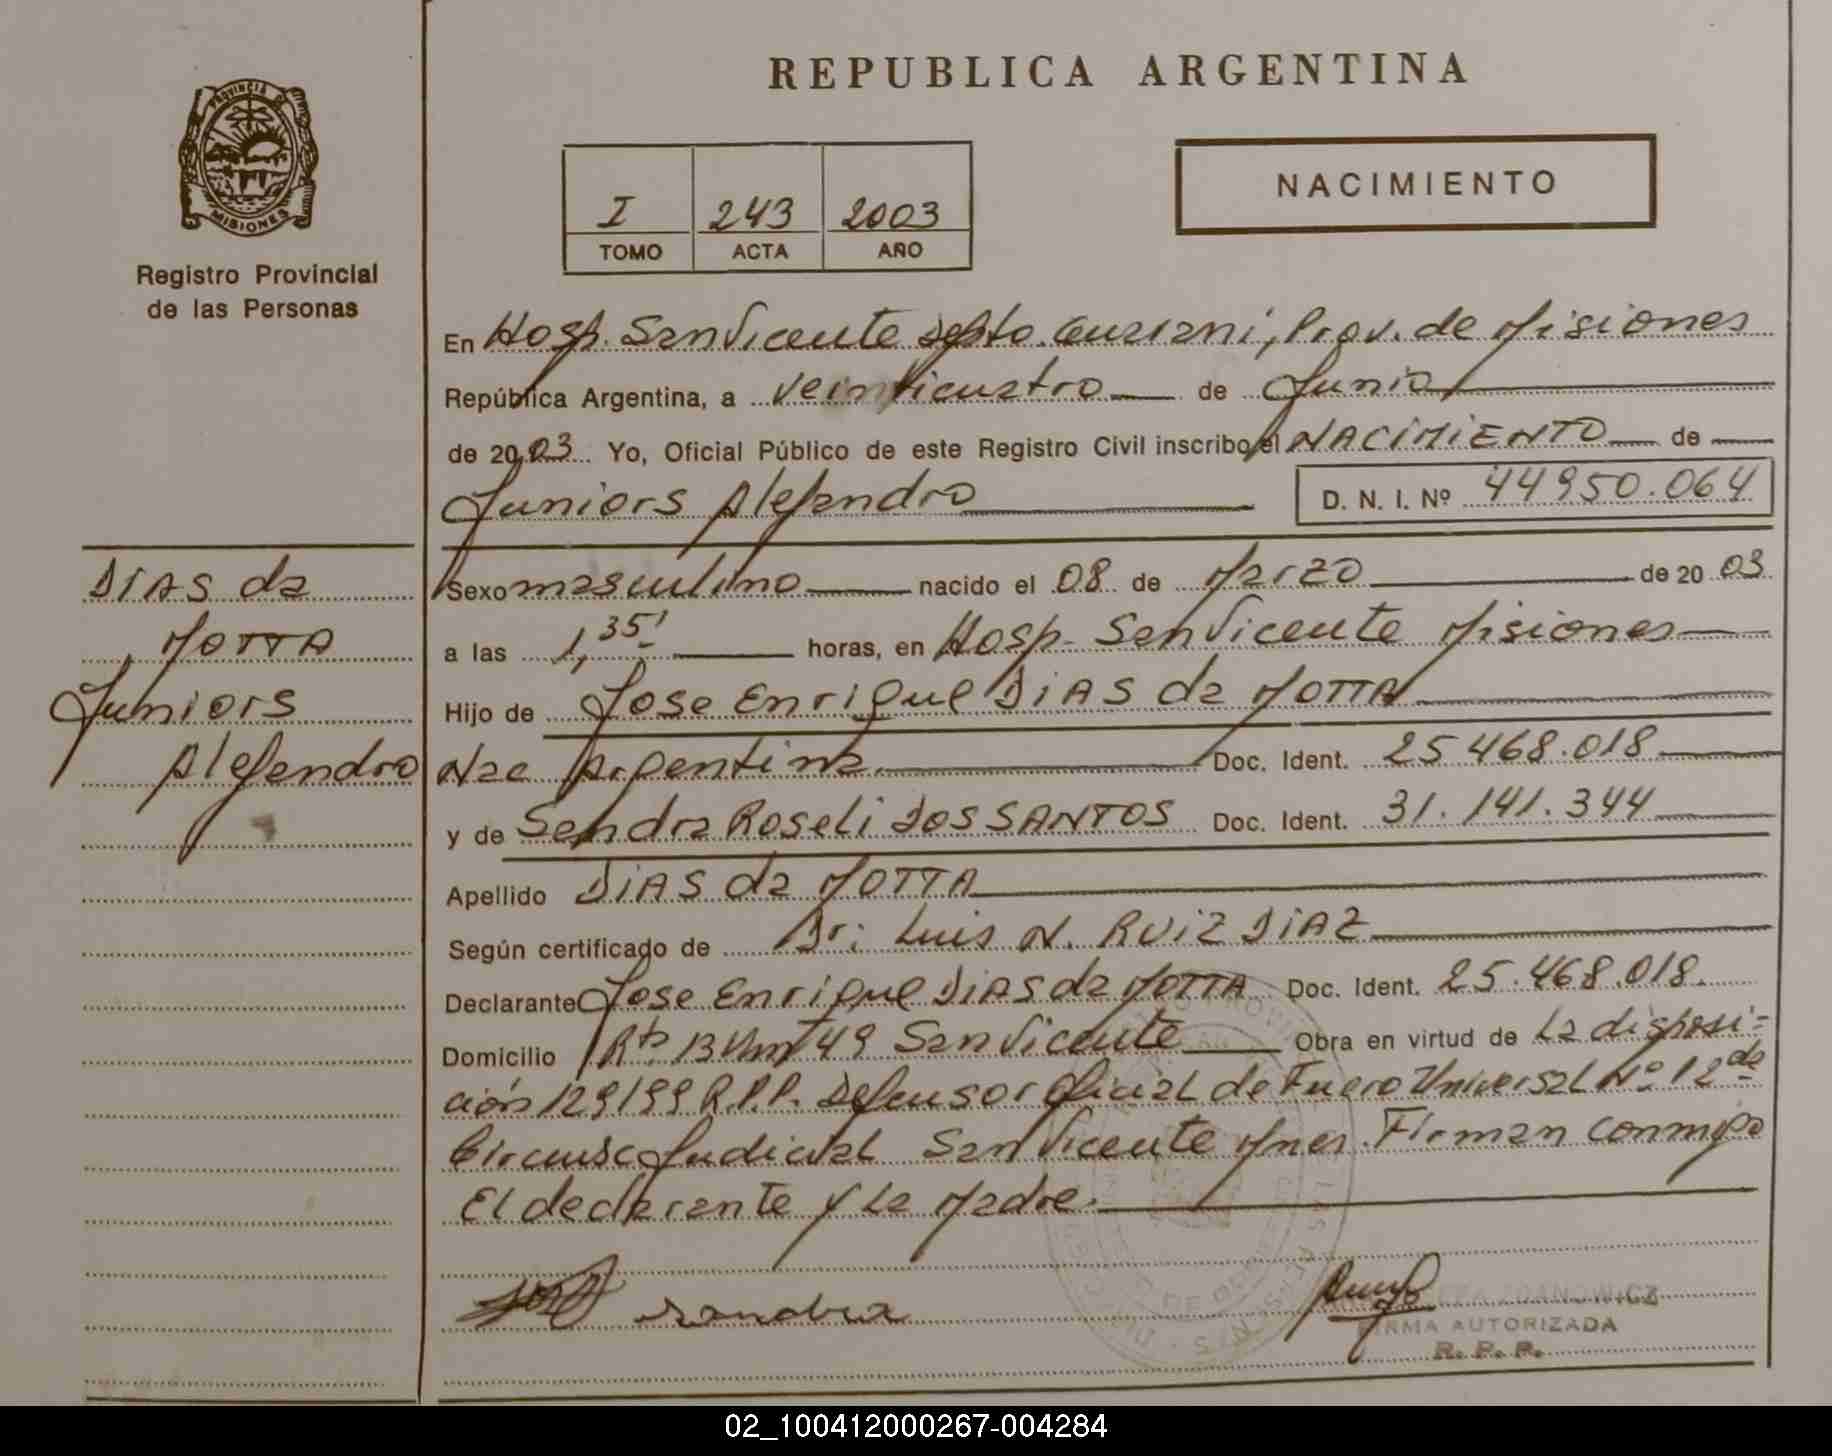 REPUBLICA ARGENTINA
PROVINCIA DE
MISIONES
Registro Provincial
de las Personas
I 243 2003
TOMO ACTA AÑO
NACIMIENTO
En Hosp. San Vicente Depto. Guarani, Prov. de Misiones
República Argentina, a veinticuatro de Junio
de 2003 Yo, Oficial Público de este Registro Civil inscribo el NACIMIENTO de
Juniors Alejandro D. N. I. Nº 44950.064
DIAS da
MOTTA
Juniors
Alejandro
Sexo masculino nacido el 08 de Marzo de 2003
a las 1,35' horas, en Hosp. San Vicente Misiones
Hijo de Jose Enrique DIAS da MOTTA
Nac Argentina Doc. Ident. 25.468.018
y de Sandra Roseli DOS SANTOS Doc. Ident. 31.141.344
Apellido DIAS da MOTTA
Según certificado de Dr: Luis N. RUIZ DIAZ
Declarante Jose Enrique DIAS da MOTTA Doc. Ident. 25.468.018.
Domicilio Rta. 13 Km 49 San Vicente Obra en virtud de La disposi-
ción 129/99 R.P.P. Defensor Oficial de Fuero Universal Nº 1 2da
Circunsc Judicial San Vicente Mnes. Firman conmigo
El declarante y La Madre.
sandra
FIRMA AUTORIZADA
R. P. P.
02_100412000267-004284